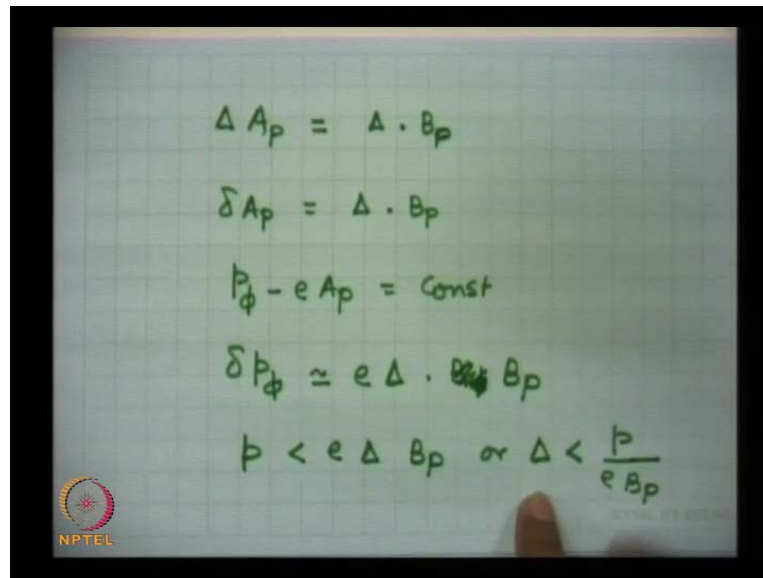 Δ A_p = Δ · B_p
δ A_p = Δ · B_p
p_ϕ - e A_p = Const
δ p_ϕ ≃ e Δ · B_p
p < e Δ B_p or Δ < p / e B_p
NPTEL